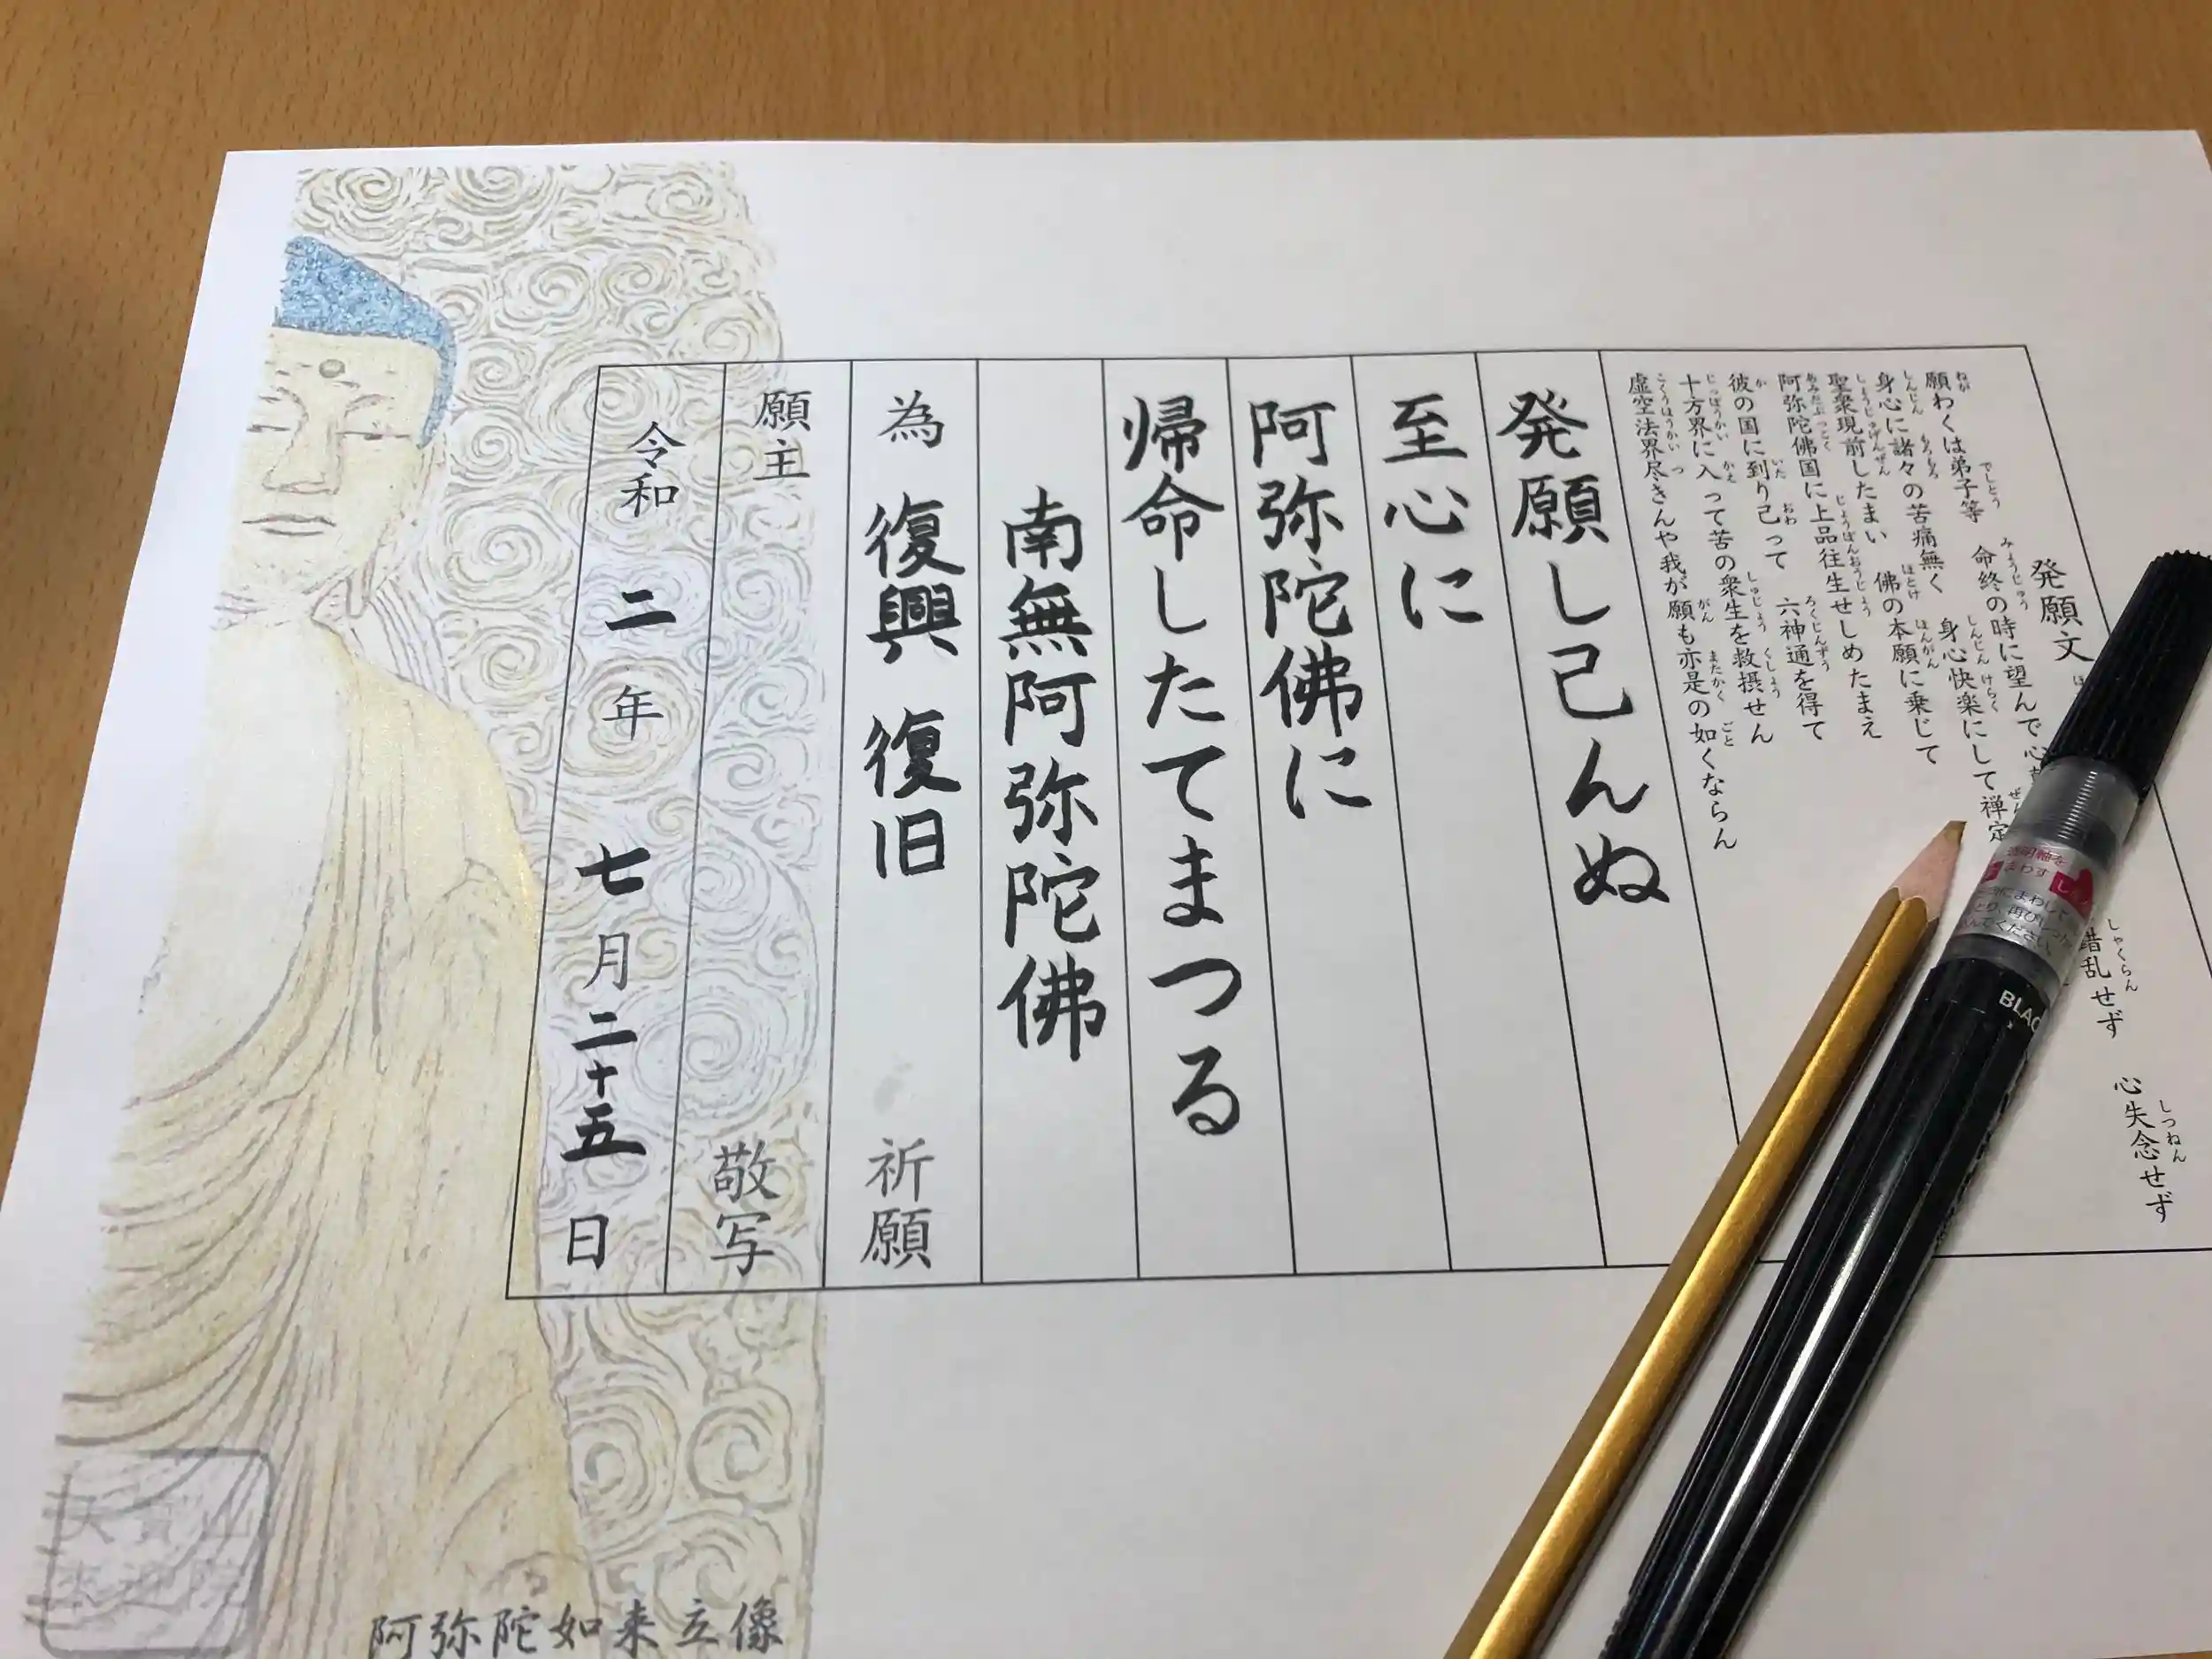 発願文
願わくは弟子等 命終の時に望んで心
錯乱せず 心失念せず
身心に諸々の苦痛無く 身心快楽にして禅定
聖衆現前したまい 佛の本願に乗じて
阿弥陀佛国に上品往生せしめたまえ
彼の国に到り己って 六神通を得て
十方界に入って苦の衆生を救摂せん
虚空法界尽きんや我が願も亦是の如くならん
発願し己んぬ
至心に
阿弥陀佛に
帰命したてまつる
南無阿弥陀佛
為 復興 復旧 祈願
願主 敬写
令和 二 年 七 月 二十五 日
阿弥陀如来立像
透明軸を
まわす
BLAC